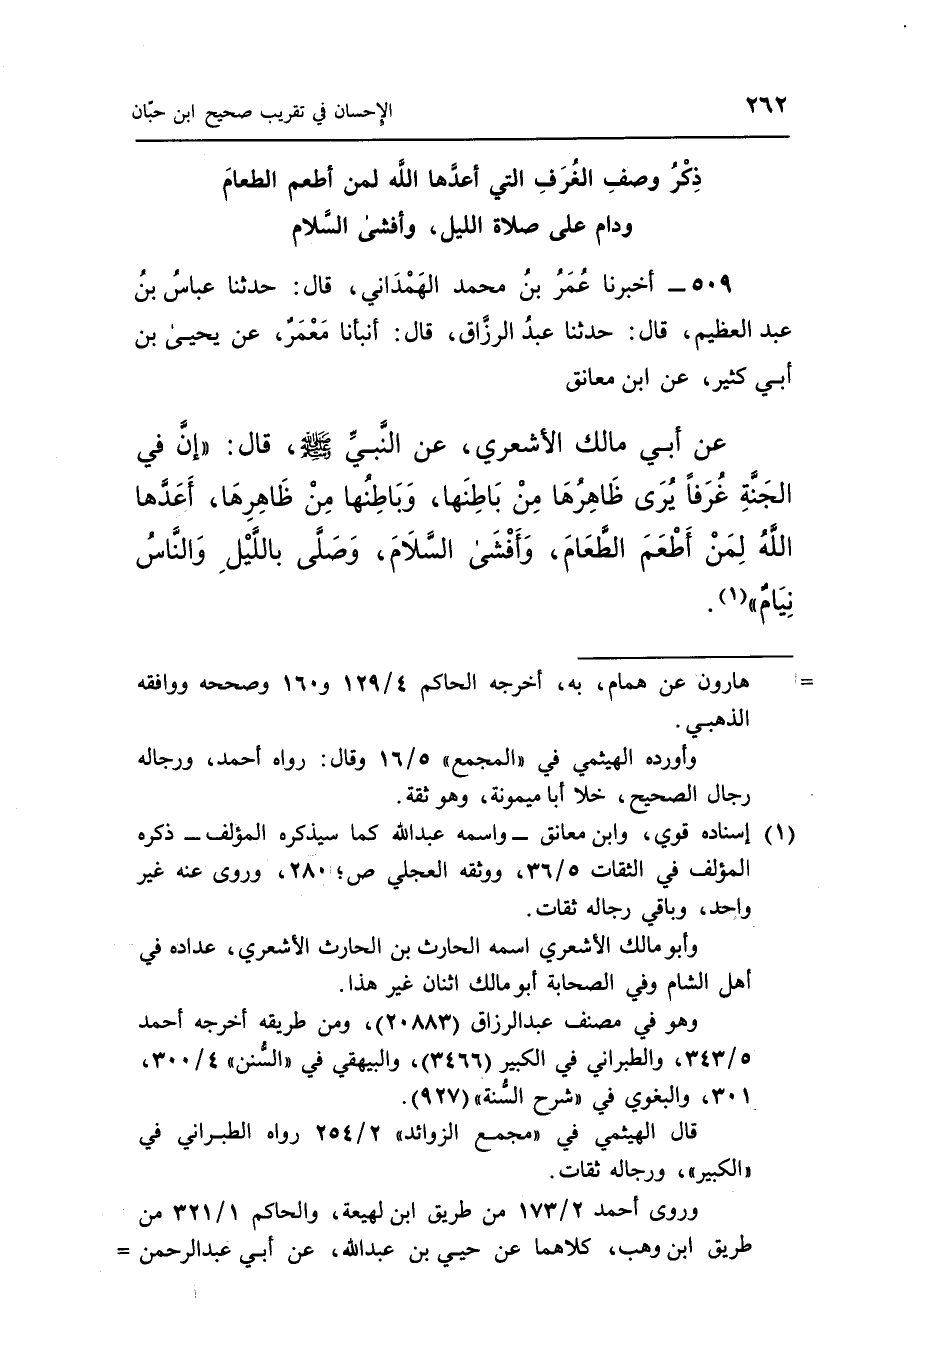 ٢٦٢ الإحسان في تقريب صحيح ابن حبّان
ذِكْرُ وصفِ الغُرَفِ التي أعدَّها اللَّه لمن أطعم الطعامَ
ودام على صلاة الليل، وأفشىٰ السَّلام
٥٠٩ ــ أخبرنا عُمَرُ بنُ محمد الهَمْدَاني، قال: حدثنا عباسُ بنُ
عبد العظيم، قال: حدثنا عبدُ الرزَّاق، قال: أنبأنا مَعْمَرٌ، عن يحيىٰ بن
أبي كثير، عن ابن معانق
عن أبي مالك الأشعري، عن النَّبيِّ ﷺ، قال: «إنَّ في
الجَنَّةِ غُرَفاً يُرَى ظَاهِرُهَا مِنْ بَاطِنَها، وَبَاطِنُها مِنْ ظَاهِرِهَا، أَعَدَّها
اللَّهُ لِمَنْ أَطْعَمَ الطَّعَامَ، وَأَفْشَىٰ السَّلَامَ، وَصَلَّى باللَّيْلِ وَالنَّاسُ
نِيَامٌ»(١).
= هارون عن همام، به، أخرجه الحاكم ١٢٩/٤ و١٦٠ وصححه ووافقه
الذهبي.
وأورده الهيثمي في «المجمع» ١٦/٥ وقال: رواه أحمد، ورجاله
رجال الصحيح، خلا أبا ميمونة، وهو ثقة.
(١) إسناده قوي، وابن معانق ــ واسمه عبدالله كما سيذكره المؤلف ــ ذكره
المؤلف في الثقات ٣٦/٥، ووثقه العجلي ص؛ ٢٨٠، وروى عنه غير
واحد، وباقي رجاله ثقات.
وأبو مالك الأشعري اسمه الحارث بن الحارث الأشعري، عداده في
أهل الشام وفي الصحابة أبو مالك اثنان غير هذا.
وهو في مصنف عبدالرزاق (٢٠٨٨٣)، ومن طريقه أخرجه أحمد
٣٤٣/٥، والطبراني في الكبير (٣٤٦٦)، والبيهقي في «السُّنن» ٣٠٠/٤،
٣٠١، والبغوي في «شرح السُّنة» (٩٢٧).
قال الهيثمي في «مجمع الزوائد» ٢٥٤/٢ رواه الطبراني في
«الكبير»، ورجاله ثقات.
وروى أحمد ١٧٣/٢ من طريق ابن لهيعة، والحاكم ٣٢١/١ من
طريق ابن وهب، كلاهما عن حيي بن عبدالله، عن أبي عبدالرحمن =